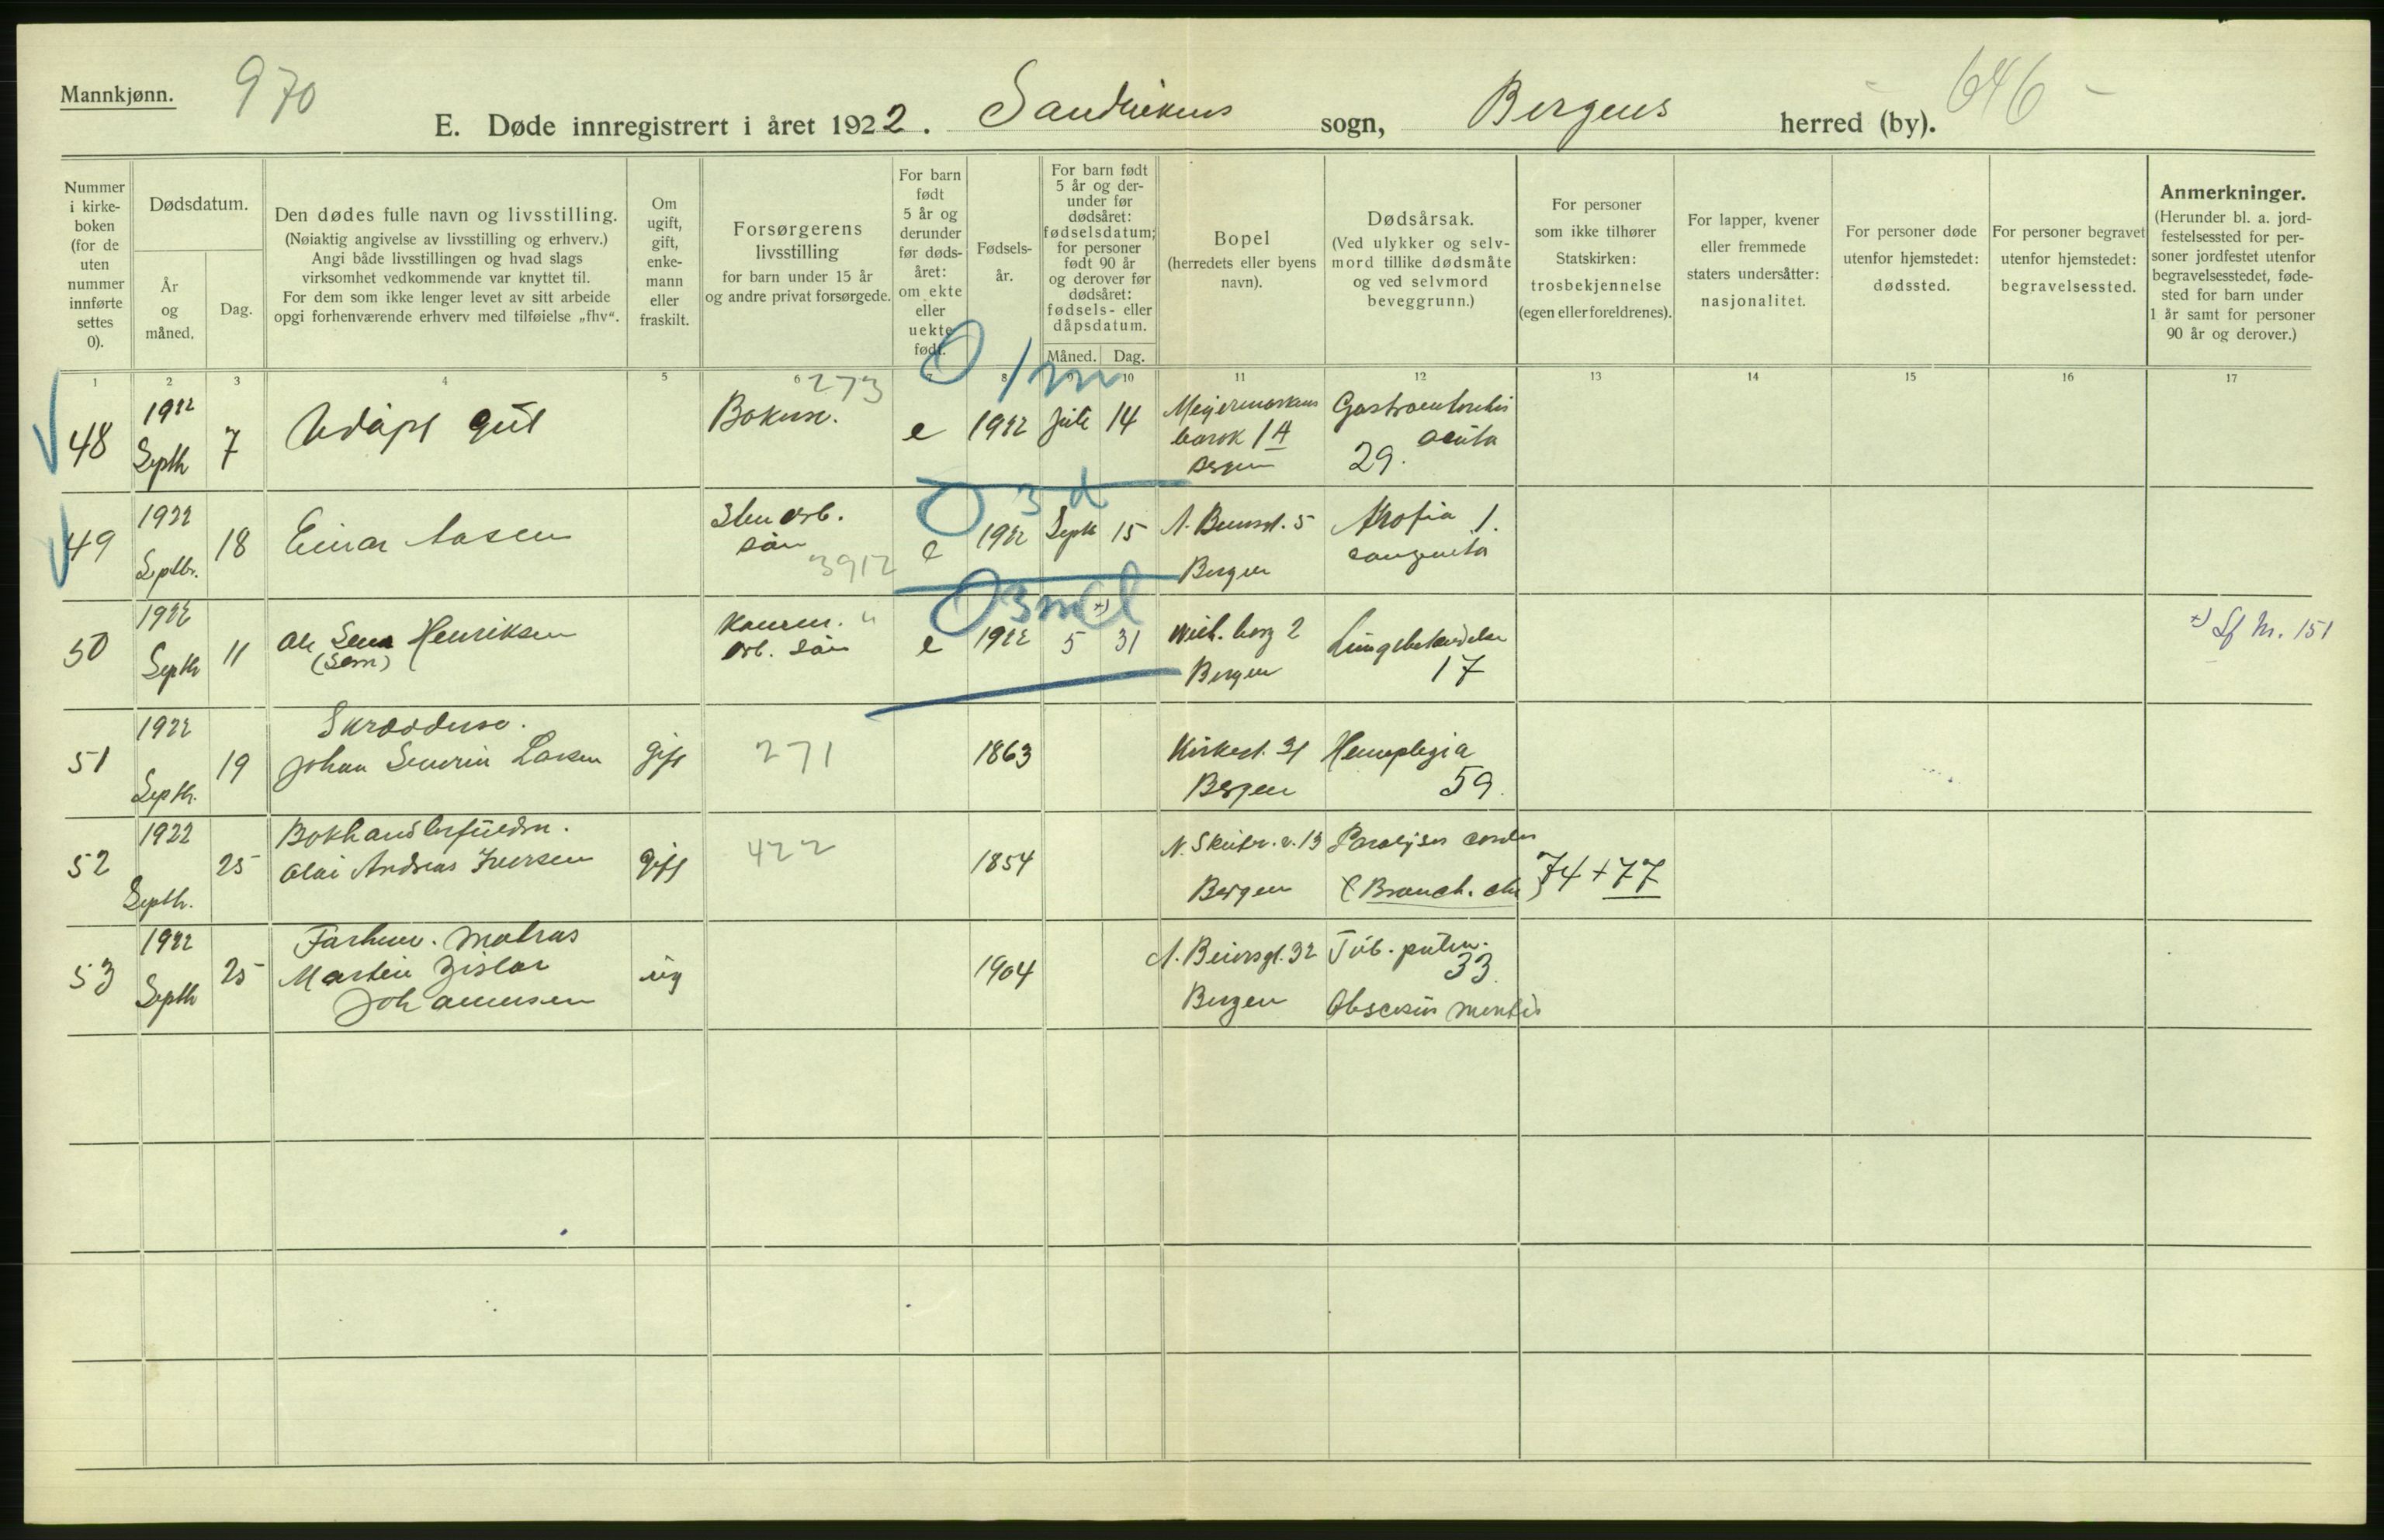 Mannkjønn.
970
E. Døde innregistrert i året 1922. Sandvikens sogn, Bergens herred (by).
646 -
Nummer i kirke- boken (for de uten nummer innførte settes 0).
Dødsdatum.
År og måned.
Dag.
Den dødes fulle navn og livsstilling.
(Nøiaktig angivelse av livsstilling og erhverv.)
Angi både livsstillingen og hvad slags
virksomhet vedkommende var knyttet til.
For dem som ikke lenger levet av sitt arbeide
opgi forhenværende erhverv med tilføielse „fhv“.
Om ugift, gift, enke- mann eller fraskilt.
Forsørgerens livsstilling
for barn under 15 år
og andre privat forsørgede.
For barn født 5 år og derunder før døds- året: om ekte eller uekte født.
Fødsels- år.
For barn født 5 år og der- under før dødsåret: fødselsdatum; for personer født 90 år og derover før dødsåret: fødsels- eller dåpsdatum.
Måned. Dag.
Bopel
(herredets eller byens navn).
Dødsårsak.
(Ved ulykker og selv- mord tillike dødsmåte og ved selvmord beveggrunn.)
For personer som ikke tilhører Statskirken: trosbekjennelse (egen eller foreldrenes).
For lapper, kvener eller fremmede staters undersåtter: nasjonalitet.
For personer døde utenfor hjemstedet: dødssted.
For personer begravet utenfor hjemstedet: begravelsessted.
Anmerkninger.
(Herunder bl. a. jord- festelsessted for per- soner jordfestet utenfor begravelsesstedet, føde- sted for barn under 1 år samt for personer 90 år og derover.)
1 2 3 4 5 6 7 8 9 10 11 12 13 14 15 16 17
273
0 1 m
48 1922 Septb 7 Udøpt gut e 1922 juli 14 Bergen Gastroenteritis acuta 29.
0 3 d
49 1922 Septbr. 18 Einar Aasen søn 3912 e 1922 Septb 15 5 Bergen Atrofia 1. congenita
0 3 m
50 1922 Septb 11 Ole Henriksen (Sem) arb. søn e 1922 5 31 +) 2 Bergen Lungebetændelse 17
+) Lf Nr. 151
51 1922 Septb. 19 Skrædderso. Johan Severin Larsen gift 271 1863 Kirkegt. 31 Bergen Hemeplegia 59.
52 1922 Septb. 25 Olai Andreas Iversen gift 422 1854 13 Bergen Paralysis cordis (Bronch. chr) 74 + 77
53 1922 Septb 25 Matros Martin Johannesen ug 1904 32 Bergen Tub. pulm. 33.